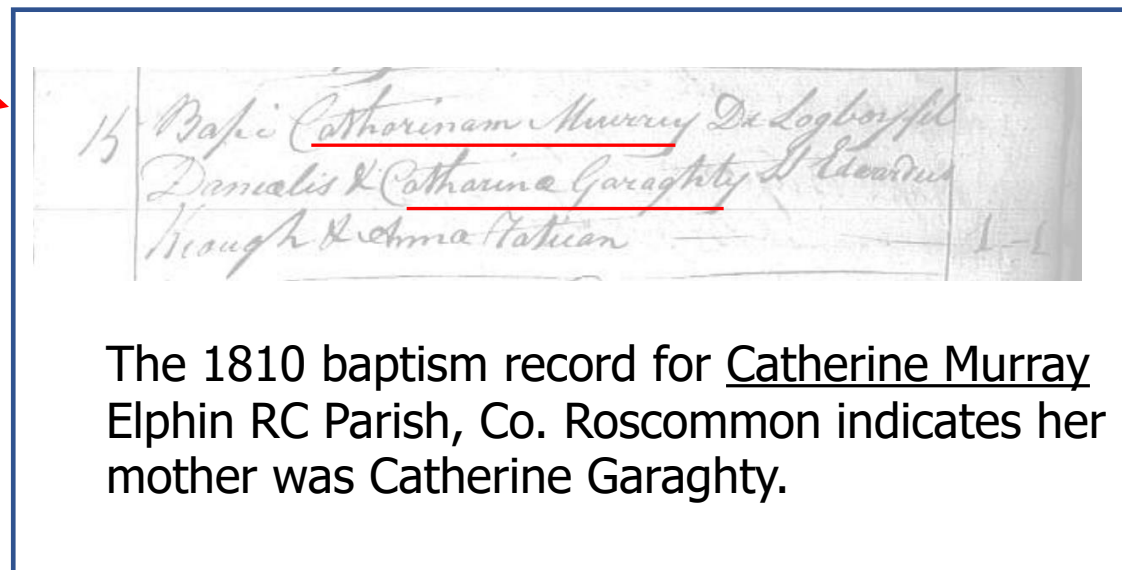 15 Bapi Catharinam Murray De Logboy fil
Danielis & Catharina Garaghty St Edwardus
Keough & Anna 1-1
The 1810 baptism record for Catherine Murray
Elphin RC Parish, Co. Roscommon indicates her
mother was Catherine Garaghty.